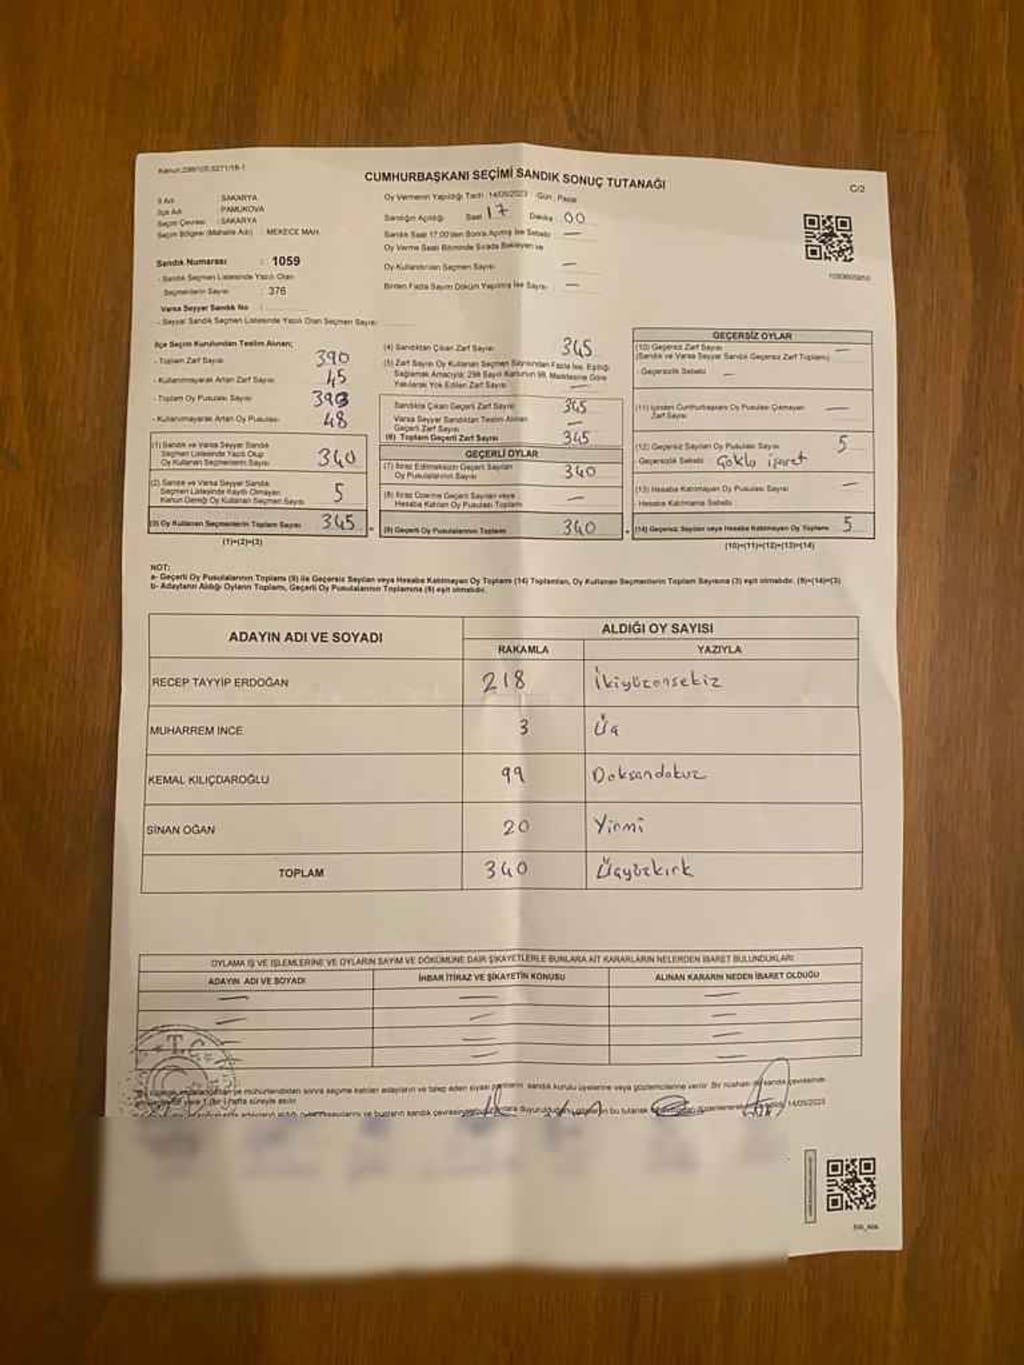 CUMHURBAŞKANI SEÇİMİ SANDIK SONUÇ TUTANAĞI
C/2
İli Adı : SAKARYA
İlçe Adı : PAMUKOVA
Seçim Çevresi : SAKARYA
Seçim Bölgesi (Mahalle Adı) : MEKECE MAH.
Sandık Numarası : 1059
- Sandık Seçmen Listesinde Yazılı Olan
Seçmenlerin Sayısı : 376
Varsa Seyyar Sandık No :
- Seyyar Sandık Seçmen Listesinde Yazılı Olan Seçmen Sayısı:
Oy Vermenin Yapıldığı Tarih : 14/05/2023 Gün : Pazar
Sandığın Açıldığı Saat 17 Dakika : 00
Sandık Saat 17.00'den Sonra Açılmış İse Sebebi : —
Oy Verme Saati Bitiminde Sırada Bekleyen ve
Oy Kullandırılan Seçmen Sayısı —
Birden Fazla Sayım Döküm Yapılmış İse Sayısı : —
İlçe Seçim Kurulundan Teslim Alınan;
- Toplam Zarf Sayısı 390
- Kullanılmayarak Artan Zarf Sayısı 45
- Toplam Oy Pusulası Sayısı 393
- Kullanılmayarak Artan Oy Pusulası 48
(1) Sandık ve Varsa Seyyar Sandık
Seçmen Listesinde Yazılı Olup
Oy Kullanan Seçmenlerin Sayısı 340
(2) Sandık ve Varsa Seyyar Sandık
Seçmen Listesinde Kayıtlı Olmayan
Kanun Gereği Oy Kullanan Seçmen Sayısı 5
(3) Oy Kullanan Seçmenlerin Toplam Sayısı 345
(1)+(2)=(3)
(4) Sandıktan Çıkan Zarf Sayısı 345
(5) Zarf Sayısı Oy Kullanan Seçmen Sayısından Fazla İse, Eşitliği
Sağlamak Amacıyla; 298 Sayılı Kanunun 98. Maddesine Göre
Yakılarak Yok Edilen Zarf Sayısı —
Sandıkta Çıkan Geçerli Zarf Sayısı 345
Varsa Seyyar Sandıktan Teslim Alınan
Geçerli Zarf Sayısı —
(6) Toplam Geçerli Zarf Sayısı 345
GEÇERLİ OYLAR
(7) İtiraz Edilmeksizin Geçerli Sayılan
Oy Pusulalarının Sayısı 340
(8) İtiraz Üzerine Geçerli Sayılan veya
Hesaba Katılan Oy Pusulası Toplamı —
(9) Geçerli Oy Pusulalarının Toplamı 340
GEÇERSİZ OYLAR
(10) Geçersiz Zarf Sayısı —
(Sandık ve Varsa Seyyar Sandık Geçersiz Zarf Toplamı)
- Geçersizlik Sebebi —
(11) İçinden Cumhurbaşkanı Oy Pusulası Çıkmayan
Zarf Sayısı —
(12) Geçersiz Sayılan Oy Pusulası Sayısı 5
- Geçersizlik Sebebi Çoklu işaret
(13) Hesaba Katılmayan Oy Pusulası Sayısı —
- Hesaba Katılmama Sebebi
(14) Geçersiz Sayılan veya Hesaba Katılmayan Oy Toplamı 5
(10)+(11)+(12)+(13)=(14)
NOT:
a- Geçerli Oy Pusulalarının Toplamı (9) ile Geçersiz Sayılan veya Hesaba Katılmayan Oy Toplamı (14) Toplamları, Oy Kullanan Seçmenlerin Toplam Sayısına (3) eşit olmalıdır. (9)+(14)=(3)
b- Adayların Aldığı Oyların Toplamı, Geçerli Oy Pusulalarının Toplamına (9) eşit olmalıdır.
ADAYIN ADI VE SOYADI ALDIĞI OY SAYISI
RAKAMLA YAZIYLA
RECEP TAYYİP ERDOĞAN 218 İkiyüzonsekiz
MUHARREM İNCE 3 Üç
KEMAL KILIÇDAROĞLU 99 Doksandokuz
SİNAN OĞAN 20 Yirmi
TOPLAM 340 Üçyüzkırk
OYLAMA İŞ VE İŞLEMLERİNE VE OYLARIN SAYIM VE DÖKÜMÜNE DAİR ŞİKAYETLERLE BUNLARA AİT KARARLARIN NELERDEN İBARET BULUNDUKLARI
ADAYIN ADI VE SOYADI İHBAR İTİRAZ VE ŞİKAYETİN KONUSU ALINAN KARARIN NEDEN İBARET OLDUĞU
— — —
— — —
— — —
— — —
T.C.
14/05/2023